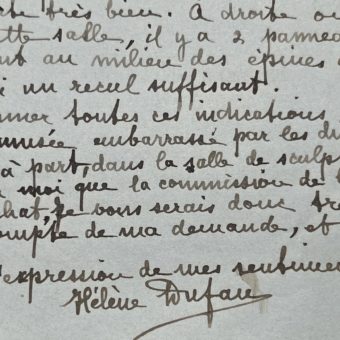 te très bien. A droite ou
ette salle, il y a 2 pannea
nt au milieu des épines
i un recul suffisant.
nner toutes ces indications
musée, embarrassé par les di
à part, dans la salle de sculp
moi que la commission de
hat, je vous serais donc tr
ompte de ma demande, et
'expression de mes sentime
Hélène Dufau